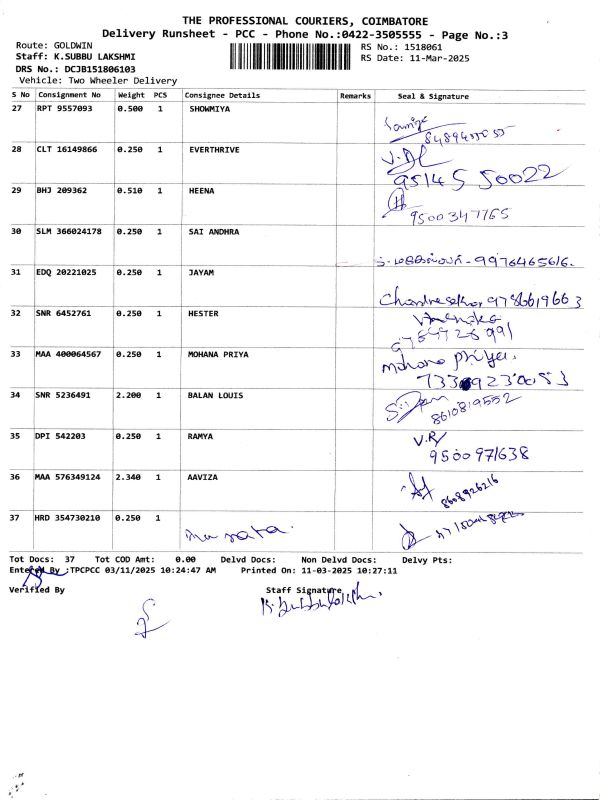 THE PROFESSIONAL COURIERS, COIMBATORE
Delivery Runsheet - PCC - Phone No.:0422-3505555 - Page No.:3
Route: GOLDWIN
RS No.: 1518061
Staff: K.SUBBU LAKSHMI
RS Date: 11-Mar-2025
DRS No.: DCJB151806103
Vehicle: Two Wheeler Delivery
S No Consignment No Weight PCS Consignee Details Remarks Seal & Signature
27 RPT 9557093 0.500 1 SHOWMIYA
28 CLT 16149866 0.250 1 EVERTHRIVE
95145 50022
29 BHJ 209362 0.510 1 HEENA
9500347765
30 SLM 366024178 0.250 1 SAI ANDHRA
9976465616.
31 EDQ 20221025 0.250 1 JAYAM
Chandrasekar 9786619663
32 SNR 6452761 0.250 1 HESTER
33 MAA 400064567 0.250 1 MOHANA PRIYA
Mohana Priya.
34 SNR 5236491 2.200 1 BALAN LOUIS
8610819552
35 DPI 542203 0.250 1 RAMYA
V.R
9500971638
36 MAA 576349124 2.340 1 AAVIZA
8608926216
37 HRD 354730210 0.250 1
Tot Docs: 37 Tot COD Amt: 0.00 Delvd Docs: Non Delvd Docs: Delvy Pts:
Entered By :TPCPCC 03/11/2025 10:24:47 AM Printed On: 11-03-2025 10:27:11
Verified By
Staff Signature